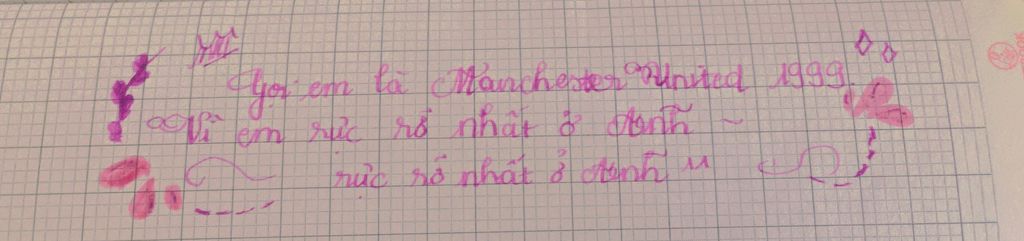 Gọi em là Manchester United 1999.
Vì em rực rỡ nhất ở
rực rỡ nhất ở